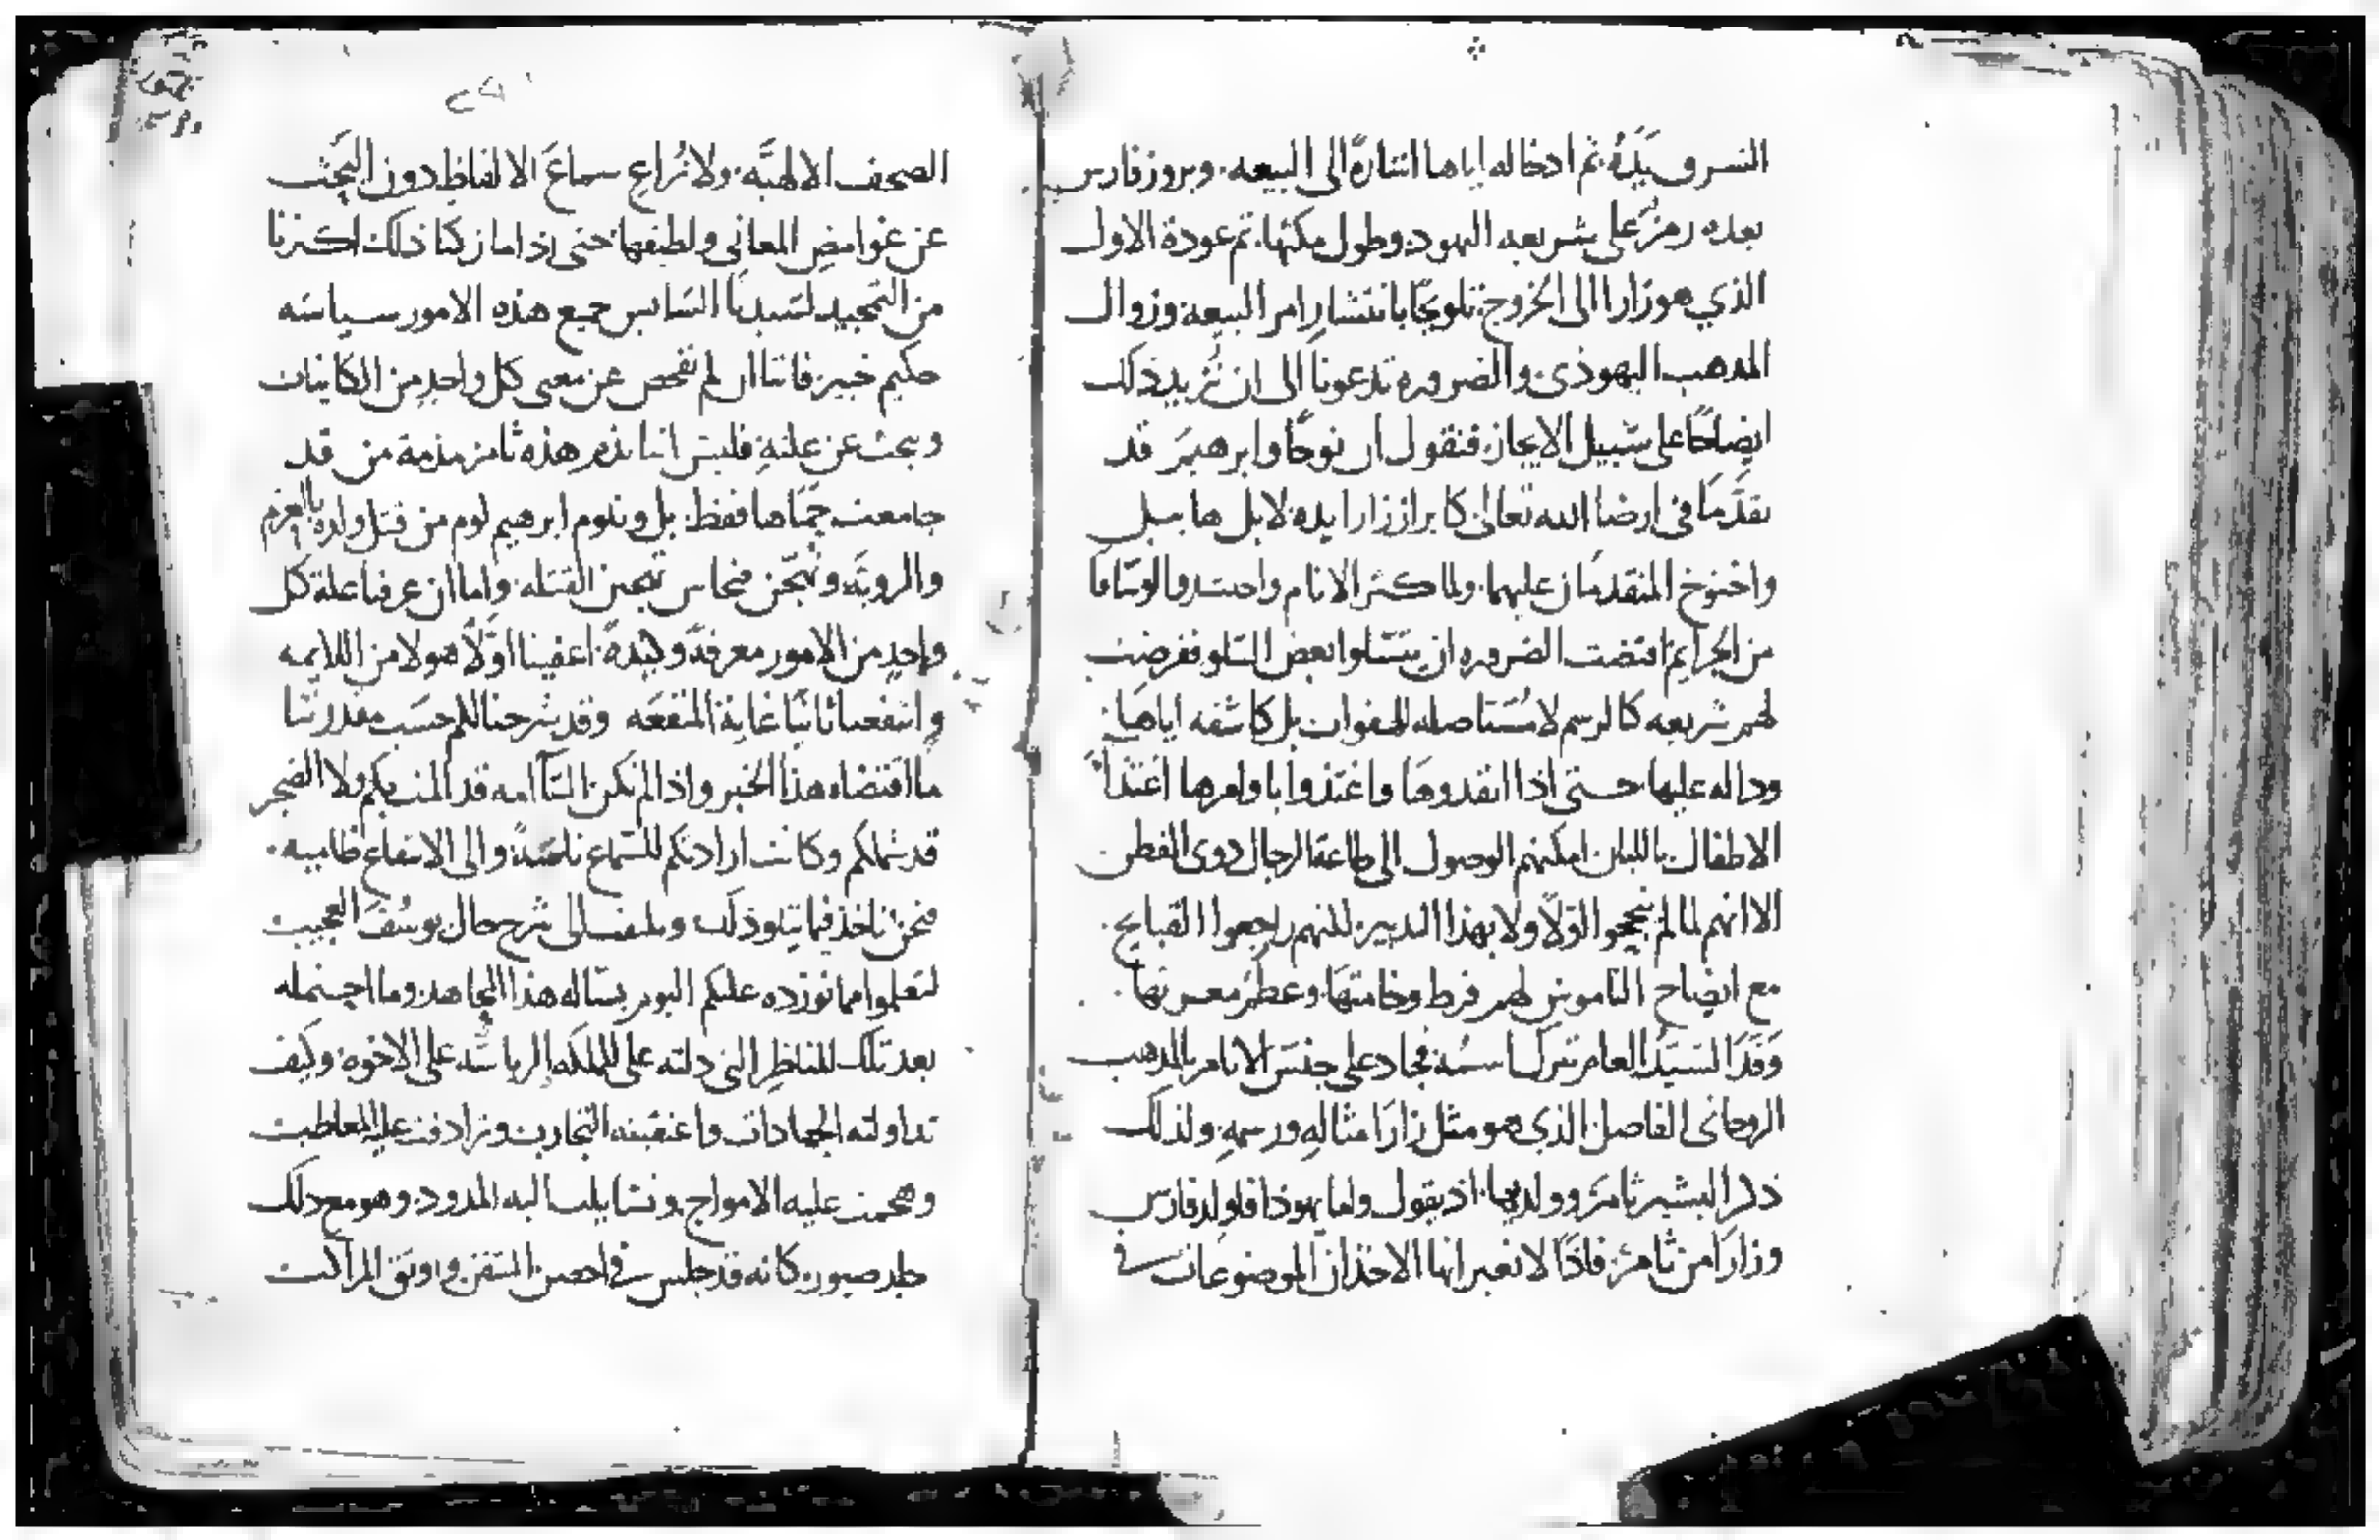 النسرف يَدَهُ ثم ادخاله اياها اشارةً الى البيعه وبروز فارس
بعده رمزٌ على شريعه اليهود وطول مكثها ثم عودة الاول
الذي هو زارا الى الخروج تلويحًا بانتشار امر البيعه وزوال
المذهب اليهوذى والضروره تدعونا الى ان نُزيد ذلك
ايضاحًا على سَبيل الايجاز فنقول ان نوحًا وابرهيمَ قد
تقدَّمَا في ارضا الله تعالى كابراز زارا يده لا بل هابيل
واخنوخ المتقدمَان عليهما ولما كثر الانام واحتدوا
من الجرايم اقتضت الضروره ان يتسَلوا بعض السَلو ففرضت
لهم شريعه كالرسم لا مُسَتاصله للهفوات بل كاشفه اياها
وداله عليها حتى اذا انقدوهَا واغتذوا باوامرها اغتذا
الاطفال باللبان امكنهم الوصول الى طاعة الرجال دوى الفطن
الا انهم لما لم ينجحوا اوّلًا ولا بهذا التدبير لكنهم راجعوا القبايح
مع ايضاح الناموس لهم فرط وخامتهَا وعظم معرتها
وَفدَا السَيّدُ العام تبرك اسمُه فجاد على جنسَ الانام بالمذهب
الروحانى الفاضل الذي هو مثل زارَا مثاله ورسمهِ ولذلك
ذكر البشير ثامرَ وولديها اذ يقول واما يهوذا فاولد فارس
وزارَا من ثامرَ فاذًا لا نعبر انها الاخذان الموضوعات في
الصحف الالاهيَّه ولا نُراعِ سماعَ الالفاظ دون البَحث
عن غوامضِ المعاني ولطيفها حتى اذا ما زكنا ذلك اكثرنا
من التمجيد لسَيدنا السَايس جميع هذه الامور سياسَه
حكيم خبير فاننا ان لم نفحص عن معنى كل واحدٍ من الكاينات
ونبحث عن علتهِ فليس انما نذم هذه ثامر مذمة من قد
جامعت حمَاها فقط بل ونلوم ابرهيم لوم من قتل ولده بالعزم
والرويّه ونهجّن فنحاس تهجين القتله واما ان عرفنا علة كل
واحدٍ من الامور معرفةً وكيدةً اعفينا اوّلًا هولا من اللايمه
وانتفعنا ثانيًا غاية المنفعَه وقد شرحنا لكم حسَب مقدرتنا
ما اقتضاه هذا الخبر واذا لم تكن السَآامه قد المت بكم ولا الضجر
قد شملكم وكانت ارادتكم للسَماع ناصَّة والى الانتفاع ظاميه
فنحن ناخذ فيما يتلو ذلك وننصَب الى شرح حال يوسُفَ العجيبِ
لتعلموا مما نورده عليكم اليوم بسَاله هذا المجاهد وما احتمله
بعد تلك المناظِر التي دلته على المملكه والرياسَه على الاخوه وكيف
تداولته الجهادات واعتقبته التجارب وترادفت عليه المعاطبت
وهجمت عليه الامواج وتشايلت اليه المدود وهو مع ذلك
جلد صبور كانه قد جلس في احصن السَفن واوثق المراكب